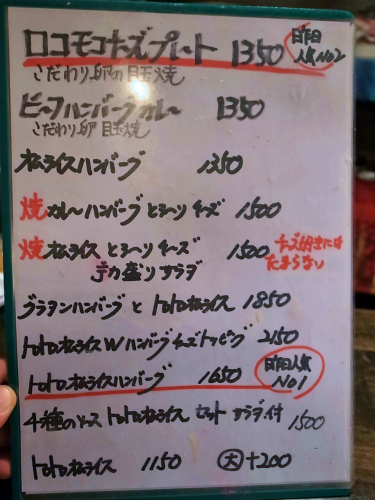 ロコモコチーズプレート 1350
昨日
人気No2
こだわり卵の目玉焼
ビーフハンバーグカレー 1350
こだわり卵 目玉焼
松ライスハンバーグ 1350
焼カレーハンバーグとろ〜りチーズ 1500
焼松ライスとろ〜りチーズ 1500
デカ盛りサラダ
チーズ好きには
たまらない
グラタンハンバーグとトロトロ松ライス 1850
トロトロ松ライスWハンバーグチーズトッピング 2150
トロトロ松ライスハンバーグ 1650
昨日人気
No1
4種のソーストロトロ松ライスセットサラダ付 1500
トロトロ松ライス 1150 大+200